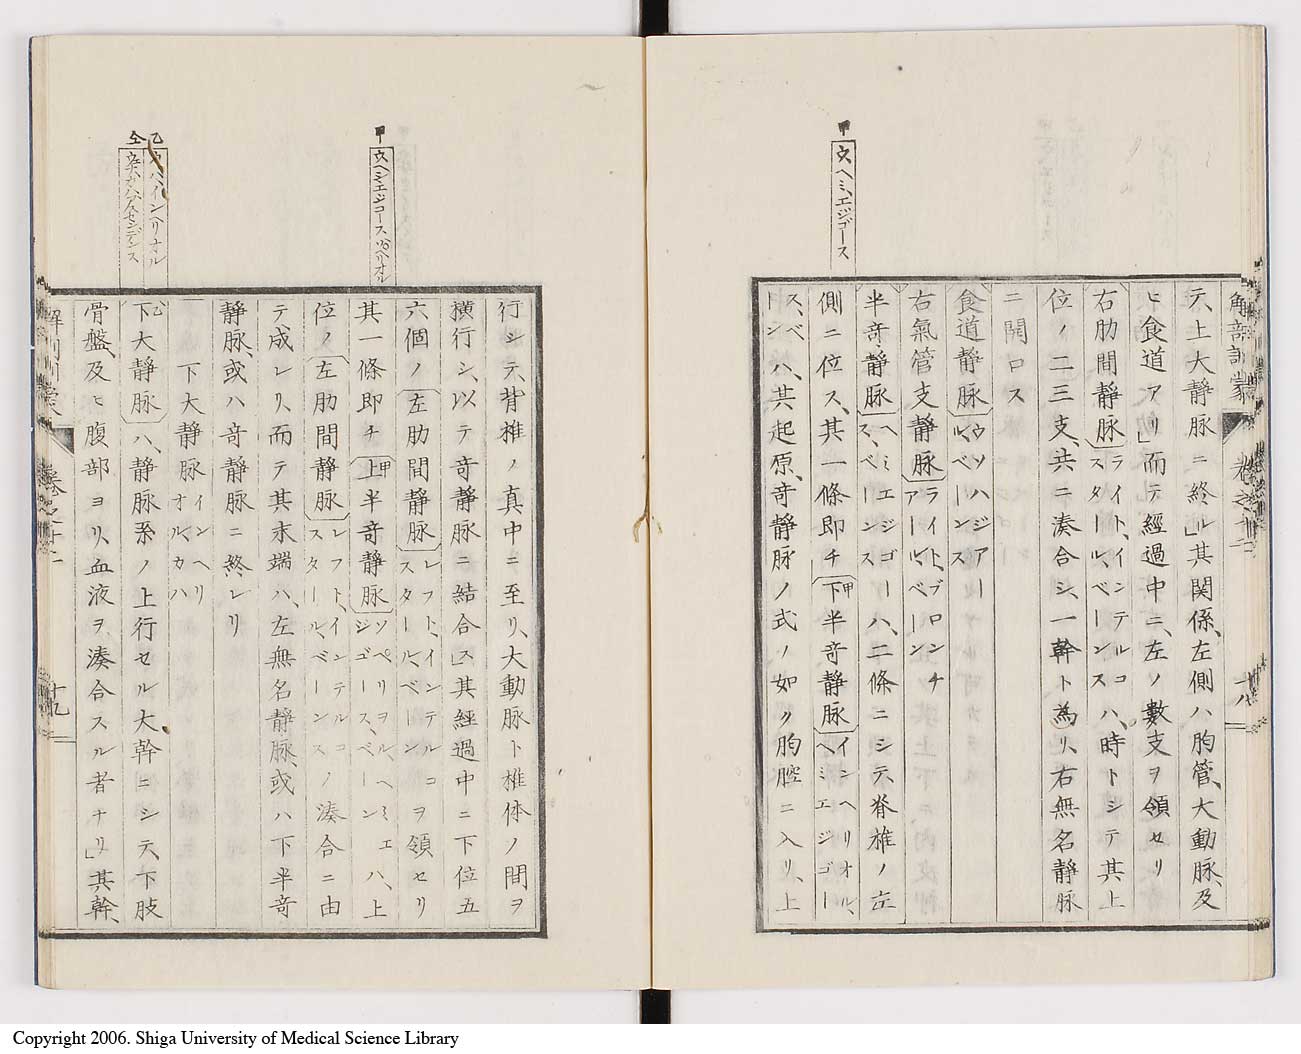 甲
欠ヘミ、エジゴース
解剖訓蒙
卷之十一
十八
テ、上大静脉ニ終ル」其関係、左側ハ胸管、大動脉、及
ヒ食道アリ」而テ經過中ニ、左ノ數支ヲ領セリ
右肋間静脉ライト、インテルコスタール、ベーンスハ、時トシテ其上
位ノ二三支、共ニ湊合シ、一幹ト為リ、右無名静脉
ニ開口ス
食道静脉ウソハジアール、ベーンス
右氣管支静脉ライト、ブロンチアール、ベーン
半竒静脉ヘミエジゴース、ベーンスハ、二條ニシテ、脊椎ノ左
側ニ位ス、其一條即チ下甲半竒静脉インヘリオル、ヘミエジゴー
ス、ベーンハ、其起原、竒静脉ノ式ノ如ク胸腔ニ入リ、上
甲
欠ヘミエジゴース
行シテ、背椎ノ真中ニ至リ、大動脉ト椎体ノ間ヲ
横行シ、以テ竒静脉ニ結合ス」其經過中ニ下位五
六個ノ左肋間静脉レフト、インテルコスタール、ベーンヲ領セリ
其一條即チ上甲半竒静脉ソペリヲル、ヘミエジゴース、ベーンハ、上
位ノ左肋間静脉レフト、インテルコスタール、ベーンスノ湊合ニ由
テ成レリ、而テ其末端ハ、左無名静脉、或ハ下半竒
静脉、或ハ竒静脉ニ終レリ
下大静脉インヘリオル、カハ
乙
下乙大静脉ハ、静脉系ノ上行セル大幹ニシテ、下肢
仝
骨盤、及ヒ腹部ヨリ、血液ヲ湊合スル者ナリ」其幹、
解剖訓蒙
卷之十一
十九
Copyright 2006. Shiga University of Medical Science Library